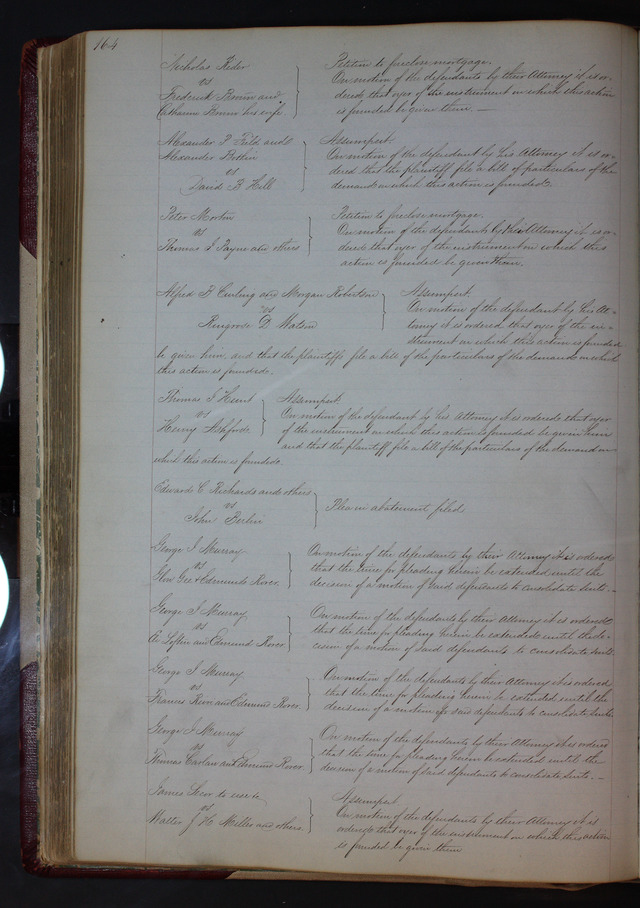 164
Nicholas Rider
vs
Frederick Brown and
Catharine Brown his wife
Petition to foreclose mortgage.
On motion of the defendants by their Attorney it is or-
dered that oyer of the instrument on which this action
is founded be given them. —
Alexander P Field and
Alexander
vs
David B Hill
Assumpsit
On motion of the defendant by his Attorney it is or-
dered that the plaintiff file a bill of particulars of the
demand on which this action is founded.
Peter Morton
vs
Thomas J Payne and others
Petition to foreclose mortgage.
On motion of the defendants by their Attorney it is or-
dered that oyer of the instrument on which this
action is founded be given them.
Alfred H and Morgan Robertson
vs
D. Watson
Assumpsit
On motion of the defendant by his At-
torney it is ordered that oyer of the in-
strument on which this action is founded
be given him, and that the plaintiffs file a bill of the particulars of the demand on which
this action is founded.
Thomas J Hunt
vs
Henry
Assumpsit
On motion of the defendant by his Attorney it is ordered that oyer
of the instrument on which this action is founded be given him
and that the plaintiff file a bill of the particulars of the demand on
which this action is founded.
Edward C Richards and others
vs
John
Plea in abatement filed
George J Murray
vs
Gee & Edmund Rover
On motion of the defendants by their Attorney it is ordered
that the time for pleading herein be extended until the
decision of a motion of said defendants to consolidate suits. —
George J Murray
vs
Loftin and Edmund Rover
On motion of the defendants by their Attorney it is ordered
that the time for pleading herein be extended until the de-
cision of a motion of said defendants to consolidate suits
George J Murray
vs
Francis and Edmund Rover.
On motion of the defendants by their Attorney it is ordered
that the time for pleading herein be extended until the
decision of a motion of said defendants to consolidate suits
George J Murray
vs
Thomas and Edmund Rover
On motion of the defendants by their Attorney it is ordered
that the time for pleading herein be extended until the
decision of a motion of said defendants to consolidate suits. —
James to use &c
vs
Walter J H Miller and others
Assumpsit
On motion of the defendants by their Attorney it is
ordered that oyer of the instrument on which this action
is founded be given them